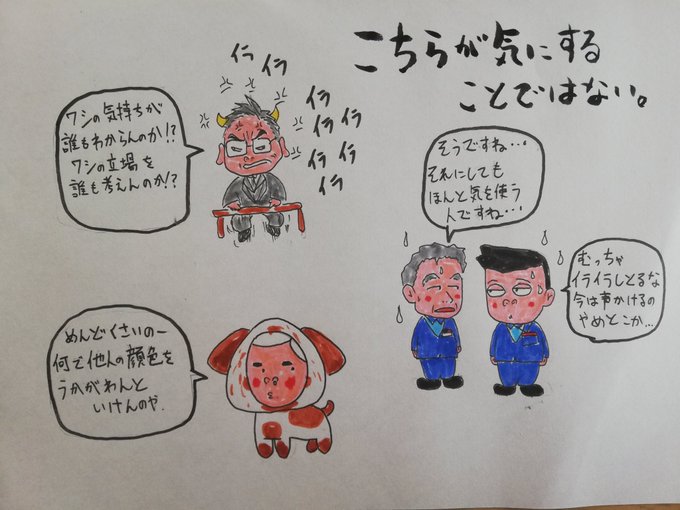 こちらが気にする
ことではない。
イラ
イラ
イラ
イラ
イラ
イラ
イラ
イラ
ワシの気持ちが
誰もわからんのか!?
ワシの立場を
誰も考えんのか!?
そうですね…
それにしても
ほんと気を使う
人ですね…
むっちゃ
イライラしとるな
今は声かけるの
やめとこか…
めんどくさいのー
何で他人の顔色を
うかがわんと
いけんのや.